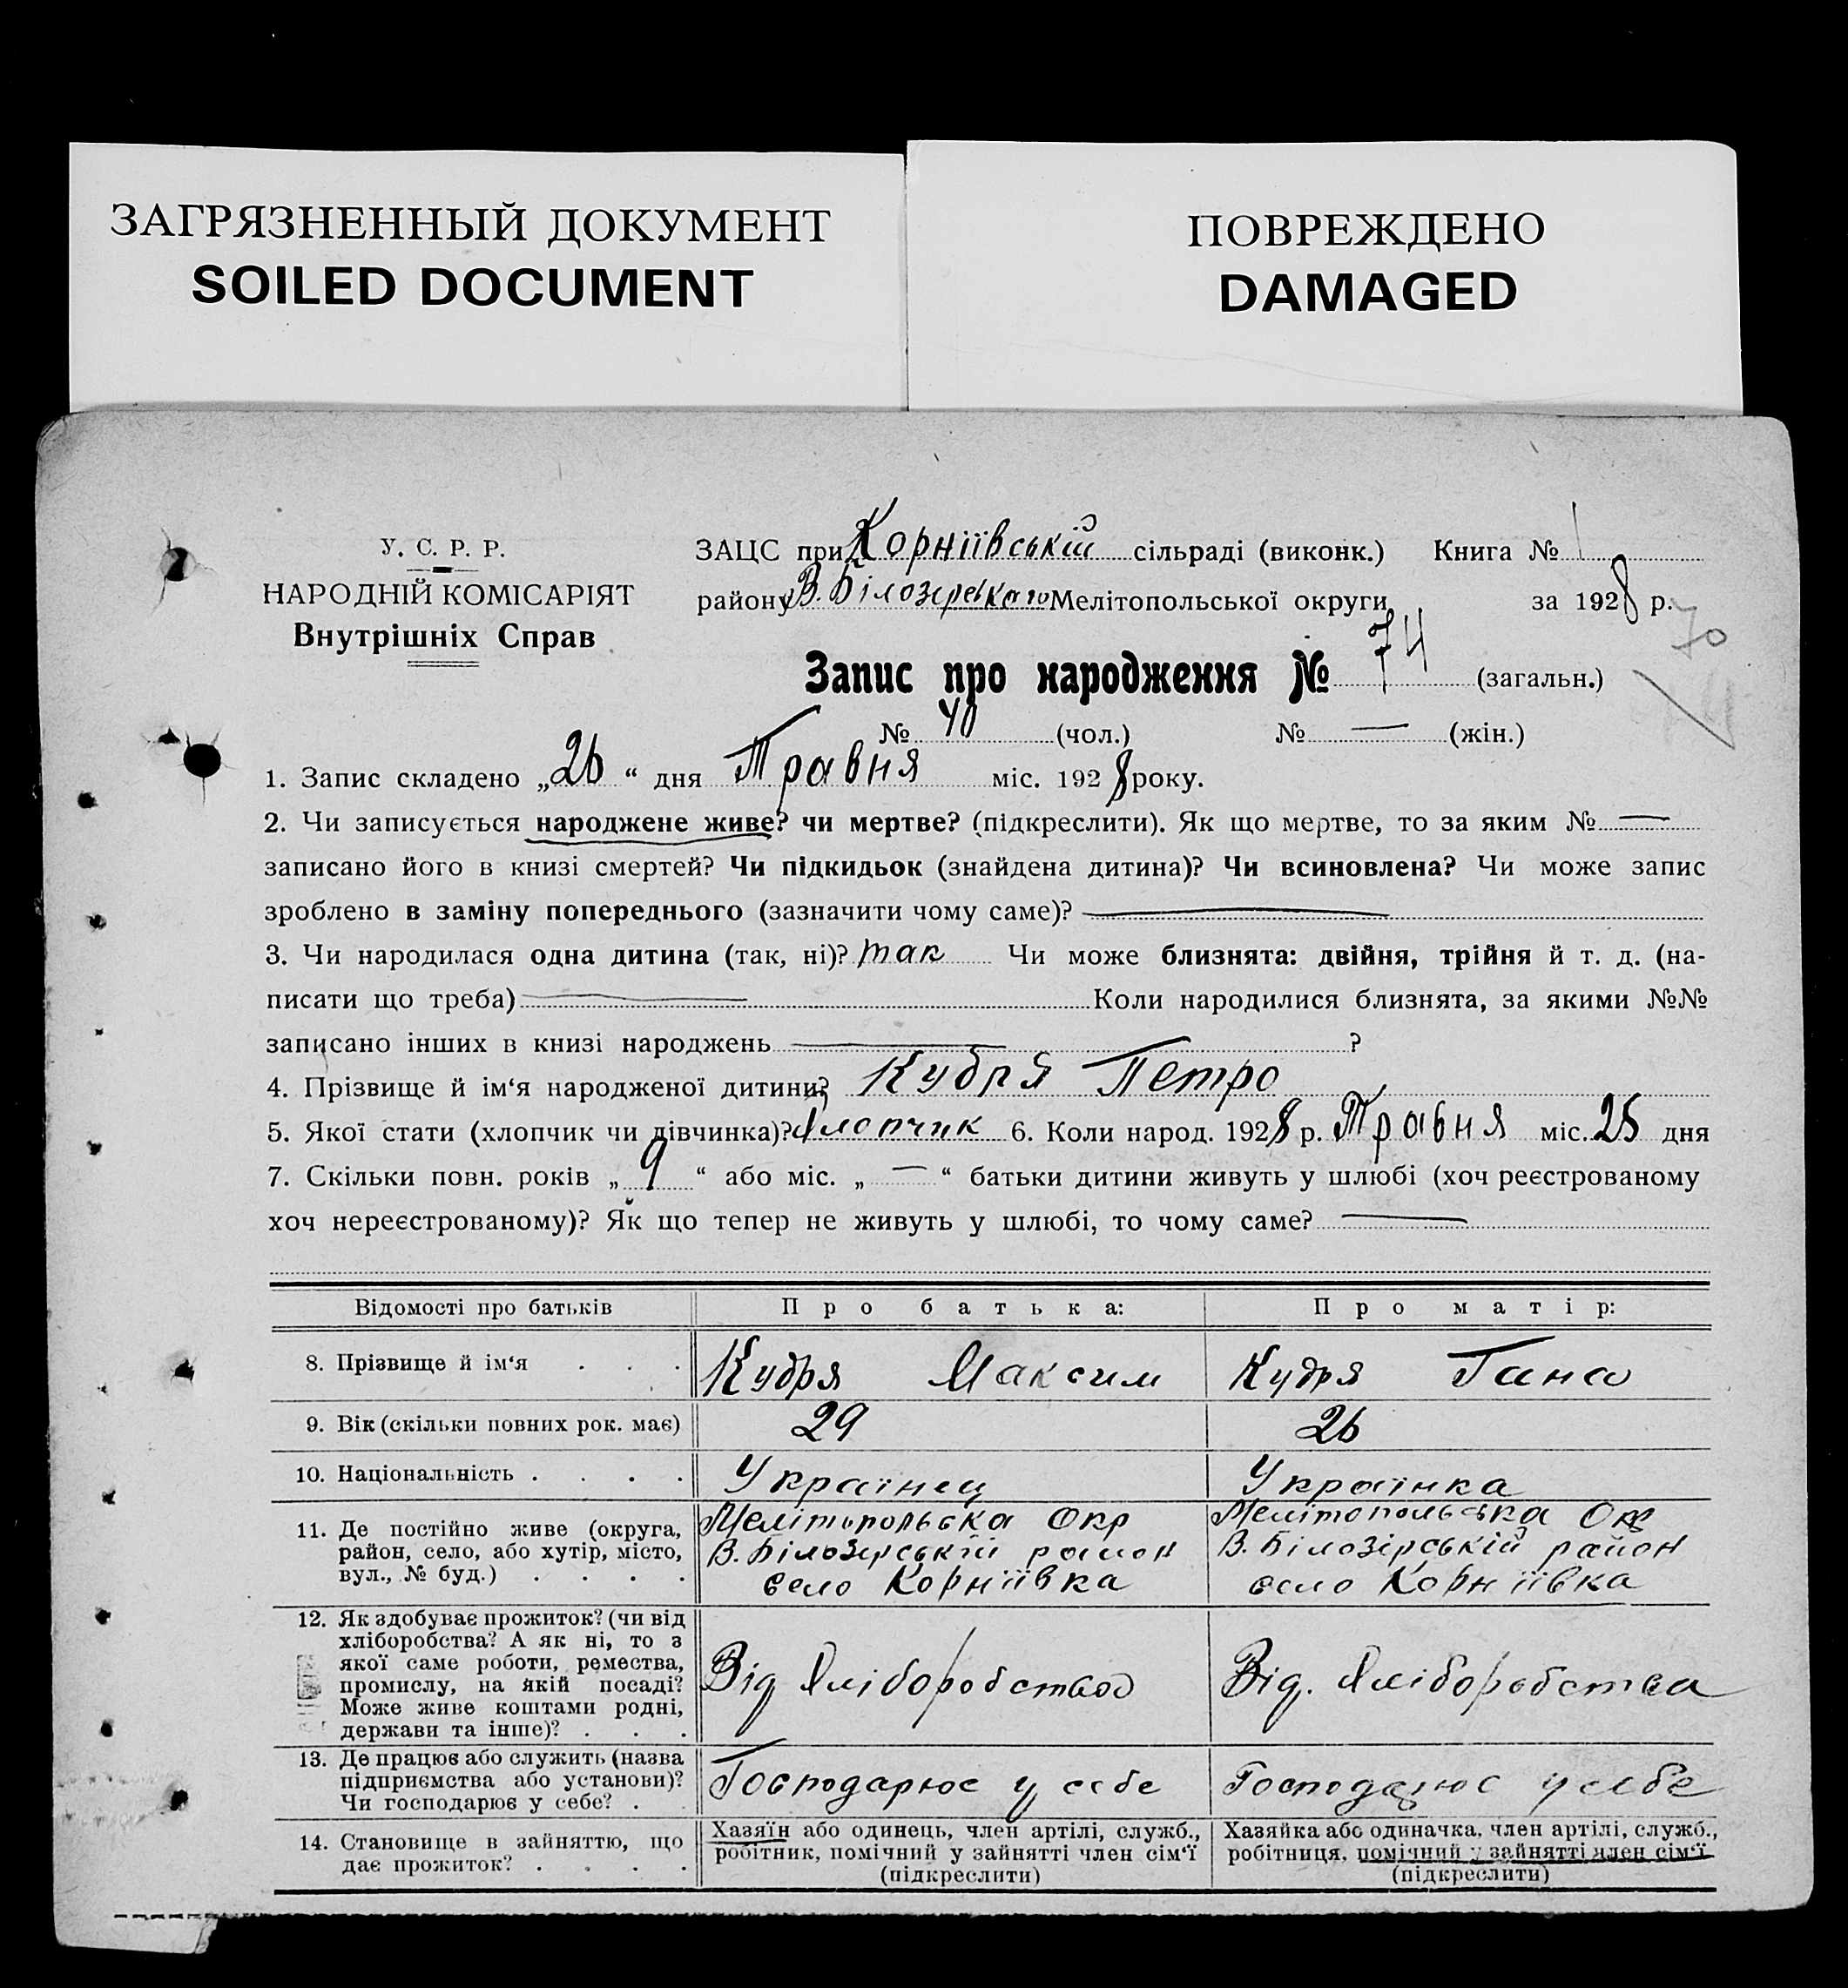 ЗАГРЯЗНЕННЫЙ ДОКУМЕНТ
SOILED DOCUMENT
ПОВРЕЖДЕНО
DAMAGED
У. С. Р. Р.
НАРОДНІЙ КОМІСАРІЯТ
Внутрішніх Справ
ЗАЦС при Корніївській сільраді (виконк.) Книга № 1
району В. Білозерського Мелітопольської округи за 1928 р.
70
Запис про народження № 74 (загальн.)
№ 40 (чол.) № — (жін.)
1. Запис складено „26“ дня Травня міс. 1928 року.
2. Чи записується народжене живе? чи мертве? (підкреслити). Як що мертве, то за яким № —
записано його в книзі смертей? Чи підкидьок (знайдена дитина)? Чи всиновлена? Чи може запис
зроблено в заміну попереднього (зазначити чому саме)? —
3. Чи народилася одна дитина (так, ні)? так Чи може близнята: двійня, трійня й т. д. (на-
писати що треба) — Коли народилися близнята, за якими №№
записано інших в книзі народжень — ?
4. Прізвище й ім‘я народженої дитини? Кудря Петро
5. Якої стати (хлопчик чи дівчинка)? Хлопчик 6. Коли народ. 1928 р. Травня міс. 25 дня
7. Скільки повн. років „9“ або міс. „—“ батьки дитини живуть у шлюбі (хоч реєстрованому
хоч нереєстрованому)? Як що тепер не живуть у шлюбі, то чому саме? —
Відомості про батьків Про батька: Про матір:
8. Прізвище й ім‘я . . . Кудря Максим Кудря Гана
9. Вік (скільки повних рок. має) 29 26
10. Національність . . . . Українец Українка
11. Де постійно живе (округа,
район, село, або хутір, місто,
вул., № буд.) . . . .
Мелітопольська Окр
В. Білозірській район
село Корніївка
Мелітопольська Окр
В. Білозірській район
село Корніївка
12. Як здобуває прожиток? (чи від
хліборобства? А як ні, то з
якої саме роботи, ремества,
промислу, на якій посаді?
Може живе коштами родні,
держави та інше)? . . .
Від Хліборобства
Від. Хліборобства
13. Де працює або служить (назва
підприємства або установи)?
Чи господарює у себе? . .
Господарює у себе
Господарює у себе
14. Становище в зайняттю, що
дає прожиток? . . . .
Хазяїн або одинець, член артілі, служб.,
робітник, помічний у зайнятті член сім‘ї
(підкреслити)
Хазяйка або одиначка, член артілі, служб.,
робітниця, помічний у зайнятті член сім‘ї
(підкреслити)